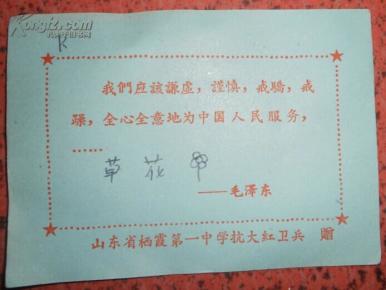 孔夫子旧书网
K
我們应該謙虛，謹愼，戒驕，戒
躁，全心全意地为中国人民服务，
……
草花
——毛澤东
山东省栖霞第一中学抗大紅卫兵 赠